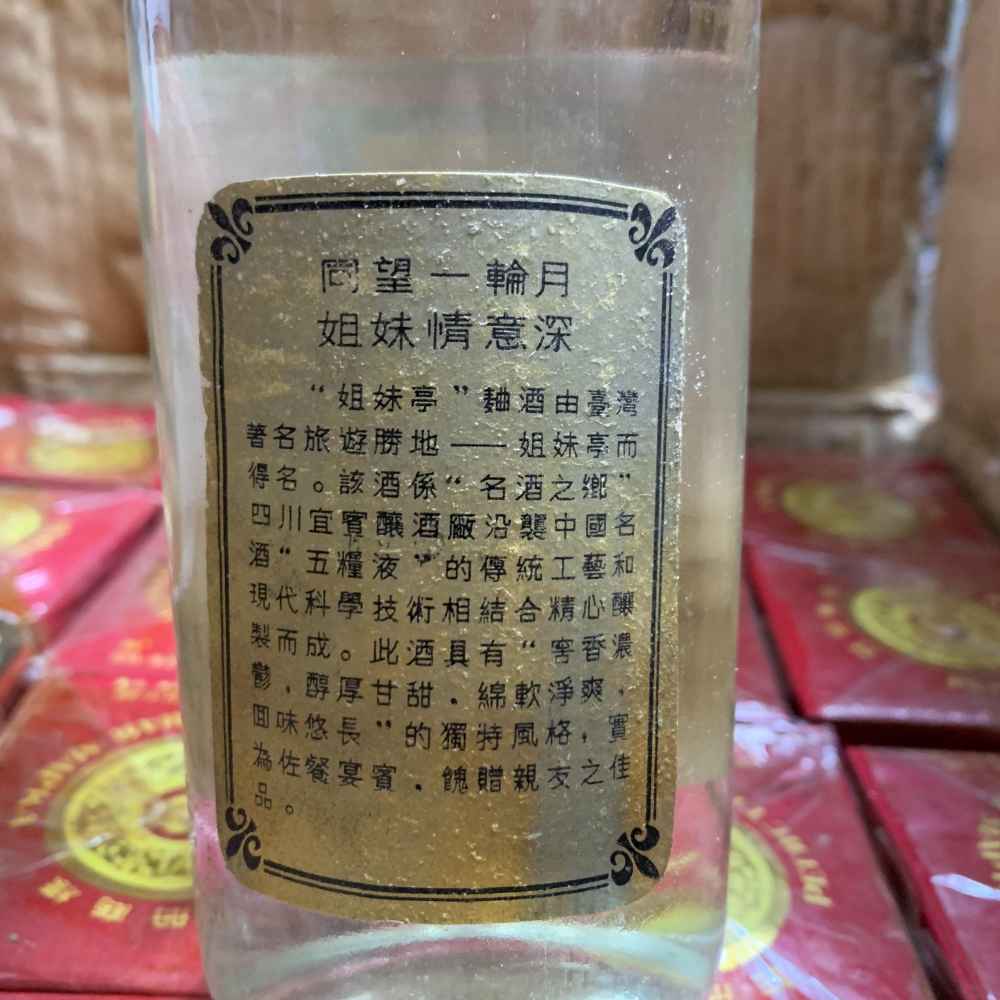 同望一輪月
姐妹情意深
“姐妹亭”麯酒由臺灣
著名旅遊勝地——姐妹亭而
得名。該酒係“名酒之鄉”
四川宜賓釀酒廠沿襲中國名
酒“五糧液”的傳統工藝和
現代科學技術相結合精心釀
製而成。此酒具有“窖香濃
鬱，醇厚甘甜，綿軟淨爽，
回味悠長”的獨特風格，實
為佐餐宴賓，餽贈親友之佳
品。